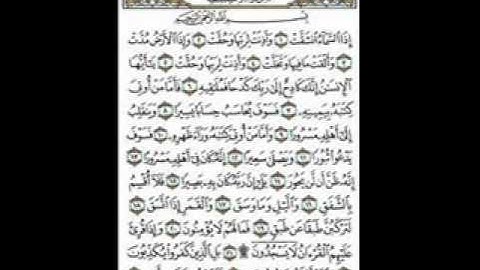 بِسْمِ اللَّهِ الرَّحْمَٰنِ الرَّحِيمِ
إِذَا السَّمَاءُ انشَقَّتْ ١ وَأَذِنَتْ لِرَبِّهَا وَحُقَّتْ ٢ وَإِذَا الْأَرْضُ مُدَّتْ
٣ وَأَلْقَتْ مَا فِيهَا وَتَخَلَّتْ ٤ وَأَذِنَتْ لِرَبِّهَا وَحُقَّتْ ٥ يَا أَيُّهَا
الْإِنسَانُ إِنَّكَ كَادِحٌ إِلَىٰ رَبِّكَ كَدْحًا فَمُلَاقِيهِ ٦ فَأَمَّا مَنْ أُوتِيَ
كِتَابَهُ بِيَمِينِهِ ٧ فَسَوْفَ يُحَاسَبُ حِسَابًا يَسِيرًا ٨ وَيَنقَلِبُ
إِلَىٰ أَهْلِهِ مَسْرُورًا ٩ وَأَمَّا مَنْ أُوتِيَ كِتَابَهُ وَرَاءَ ظَهْرِهِ ١٠ فَسَوْفَ
يَدْعُو ثُبُورًا ١١ وَيَصْلَىٰ سَعِيرًا ١٢ إِنَّهُ كَانَ فِي أَهْلِهِ مَسْرُورًا ١٣
إِنَّهُ ظَنَّ أَن لَّن يَحُورَ ١٤ بَلَىٰ إِنَّ رَبَّهُ كَانَ بِهِ بَصِيرًا ١٥ فَلَا أُقْسِمُ
بِالشَّفَقِ ١٦ وَاللَّيْلِ وَمَا وَسَقَ ١٧ وَالْقَمَرِ إِذَا اتَّسَقَ ١٨
لَتَرْكَبُنَّ طَبَقًا عَن طَبَقٍ ١٩ فَمَا لَهُمْ لَا يُؤْمِنُونَ ٢٠ وَإِذَا قُرِئَ
عَلَيْهِمُ الْقُرْآنُ لَا يَسْجُدُونَ ۩ ٢١ بَلِ الَّذِينَ كَفَرُوا يُكَذِّبُونَ